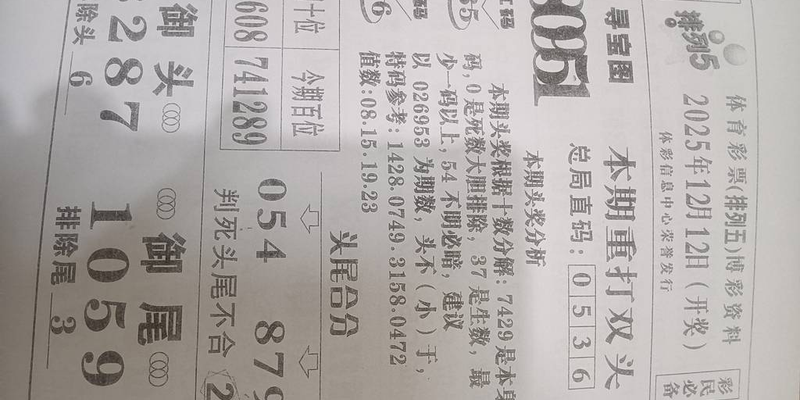 体育彩票(排列五)博彩资料
排列5
2025年12月12日(开奖)
彩民必备
体彩信息中心荣誉发行
寻宝图
本期重打双头
总局直码:0536
本期头奖分析
本期头奖根据十数分解:7429是本身
码,0是死数大胆排除,37是生数,最
少一码以上,54不明必暗,建议
以026953为期数,头不(小)于,
特码参考:1428.0749.3158.0472
值数:08.15.19.23
头尾合分
十位
今期百位
608
741289
054
879
判死头尾不合
御头
御尾
287
1059
排除尾3
除头6